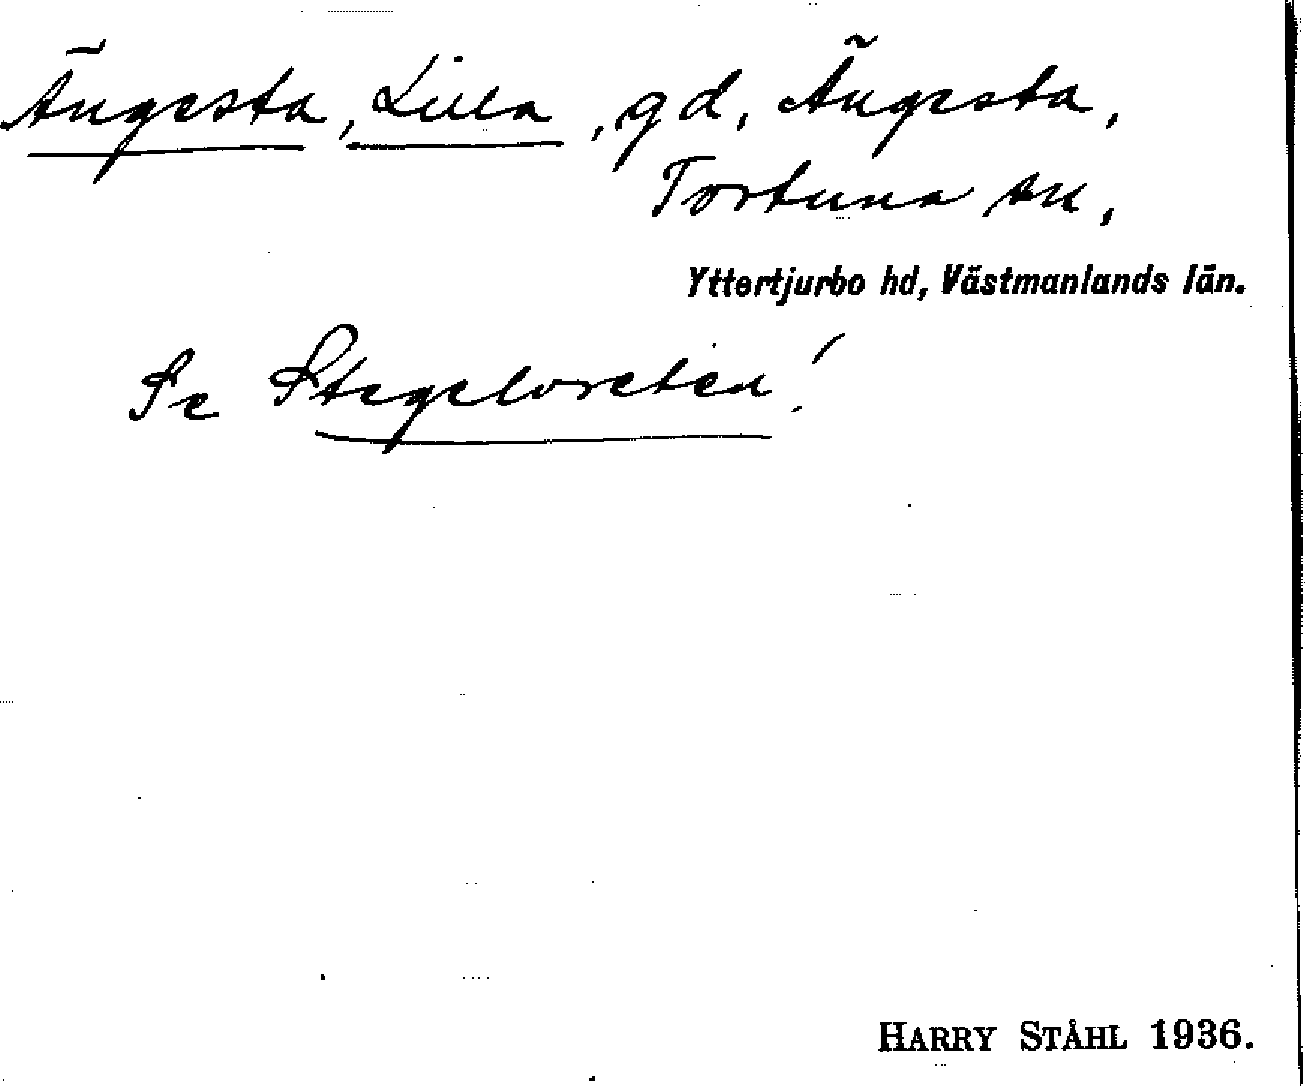 Ängesta, Lilla, gd, Ängesta,
Tortuna sn,
Yttertjurbo hd, Västmanlands län.
Se Stegelvreten!
HARRY STÅHL 1936.